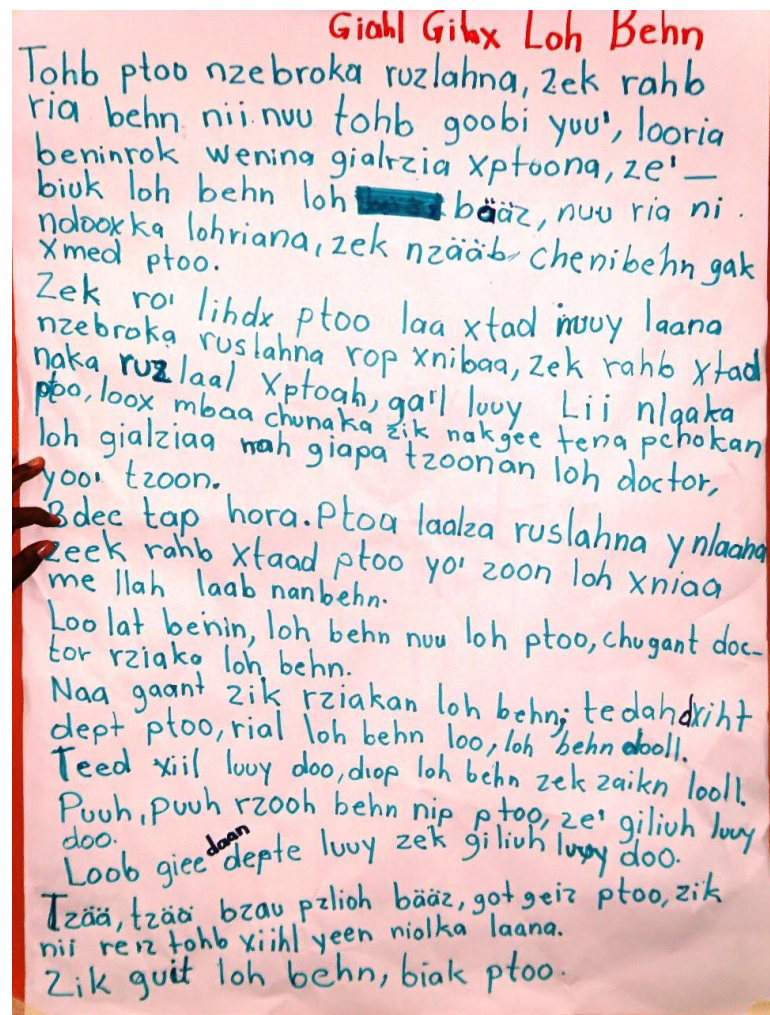 Giahl Gitax Loh Behn
Tohb ptoo nzebroka ruzlahna, zek rahb
ria behn nii nuu tohb goobi yuu', looria
beninrok wenina gialrzia xptoona, ze'—
biuk loh behn loh bääz, nuu ria ni.
ndooxka lohriana, zek nzääb chenibehn gak
xmed ptoo.
Zek ro' lihdx ptoo laa xtad muuy laana
nzebroka ruslahna rop xnibaa, zek rahb xtad
naka ruzlaal xptoah, ga'l luuy Lii nlgaka
ptoo, loox mbaa chunaka zik nakgee tena pchokan
loh gialziaa nah giapa tzoonan loh doctor,
yoo' tzoon.
Bdee tap hora. Ptoa laalza ruslahna ynlaaha
zeek rahb xtaad ptoo yo' zoon loh xniaa
me llah laab nanbehn.
Loo lat benin, loh behn nuu loh ptoo, chugant doc-
tor rziako loh behn.
Naa gaant zik rziakan loh behn; tedahdxiht
dept ptoo, rial loh behn loo, loh behn dooll.
Teed xiil luuy doo, diop loh behn zek zaikn looll.
Puuh, puuh rzooh behn nip ptoo, ze' giliuh luuy
doo.
Loob giee daan depte luuy zek giliuh luuy doo.
Tzää, tzää bzau pzlioh bääz, got geiz ptoo, zik
nii reiz tohb xiihl yeen niolka laana.
Zik guit loh behn, biak ptoo.